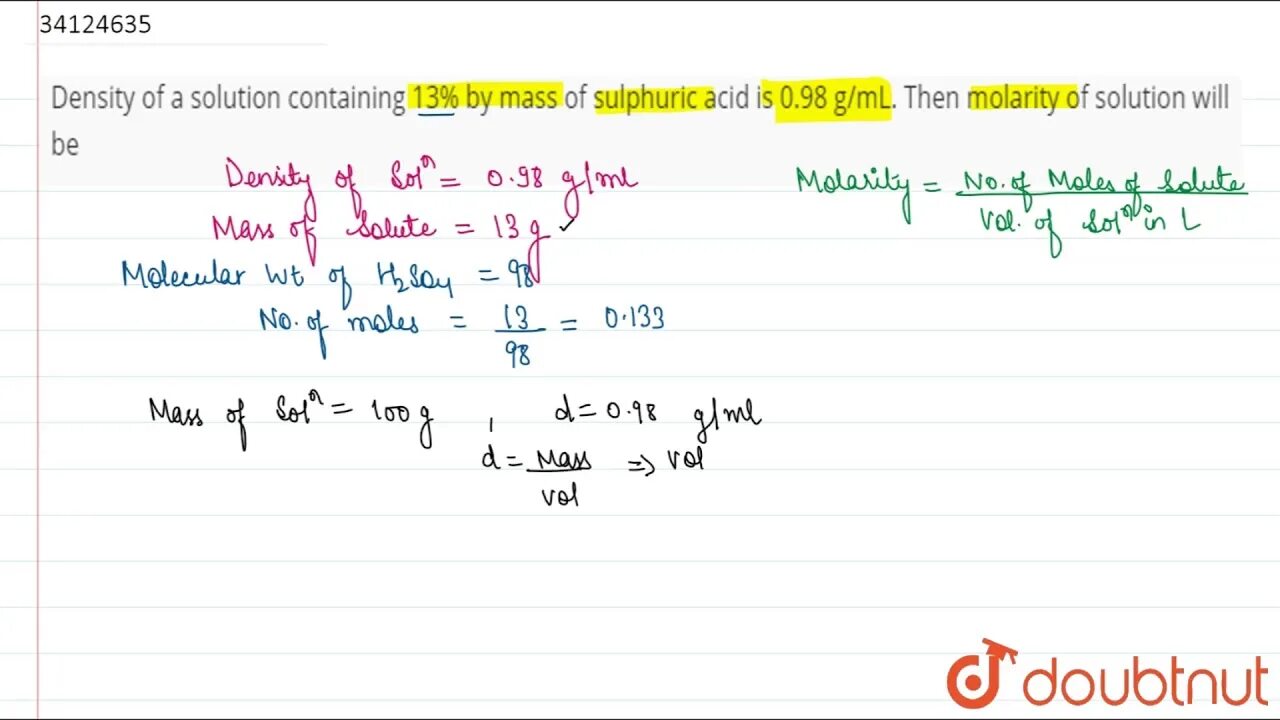 34124635
Density of a solution containing 13% by mass of sulphuric acid is 0.98 g/mL. Then molarity of solution will
be
Density of Solⁿ = 0.98 g/ml
Mass of Solute = 13 g ✓
Molecular Wt of H₂SO₄ = 98
No. of moles = 13/98 = 0.133
Molarity = No. of Moles of Solute / Vol. of Solⁿ in L
Mass of Solⁿ = 100 g , d = 0.98 g/ml
d = Mass/Vol ⇒ Vol
doubtnut